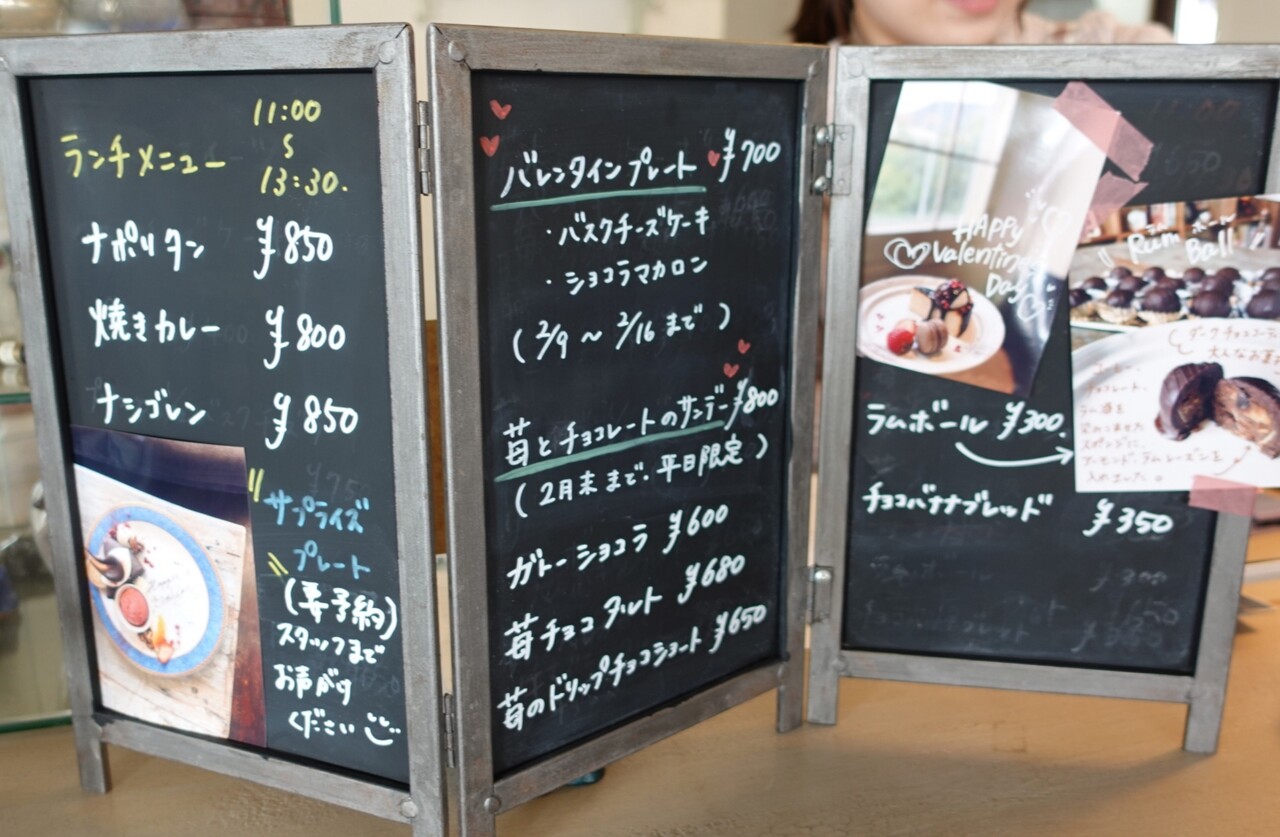 ランチメニュー
11:00
S
13:30.
ナポリタン ¥850
焼きカレー ¥800
ナシゴレン ¥850
サプライズ
プレート
(要予約)
スタッフまで
お声がけ
ください
バレンタインプレート ¥700
・バスクチーズケーキ
・ショコラマカロン
(2/9 〜 2/16 まで)
苺とチョコレートのサンデー ¥800
(2月末まで.平日限定)
ガトーショコラ ¥600
苺チョコタルト ¥680
苺のドリップチョコショート ¥650
HAPPy
Valentine's
Day
ラムボール
Rum Ball
ラムボール ¥300.
チョコバナナブレッド ¥350
ラム酒を
スポンジに、
アーモンド、ラムレーズンを
入れました。